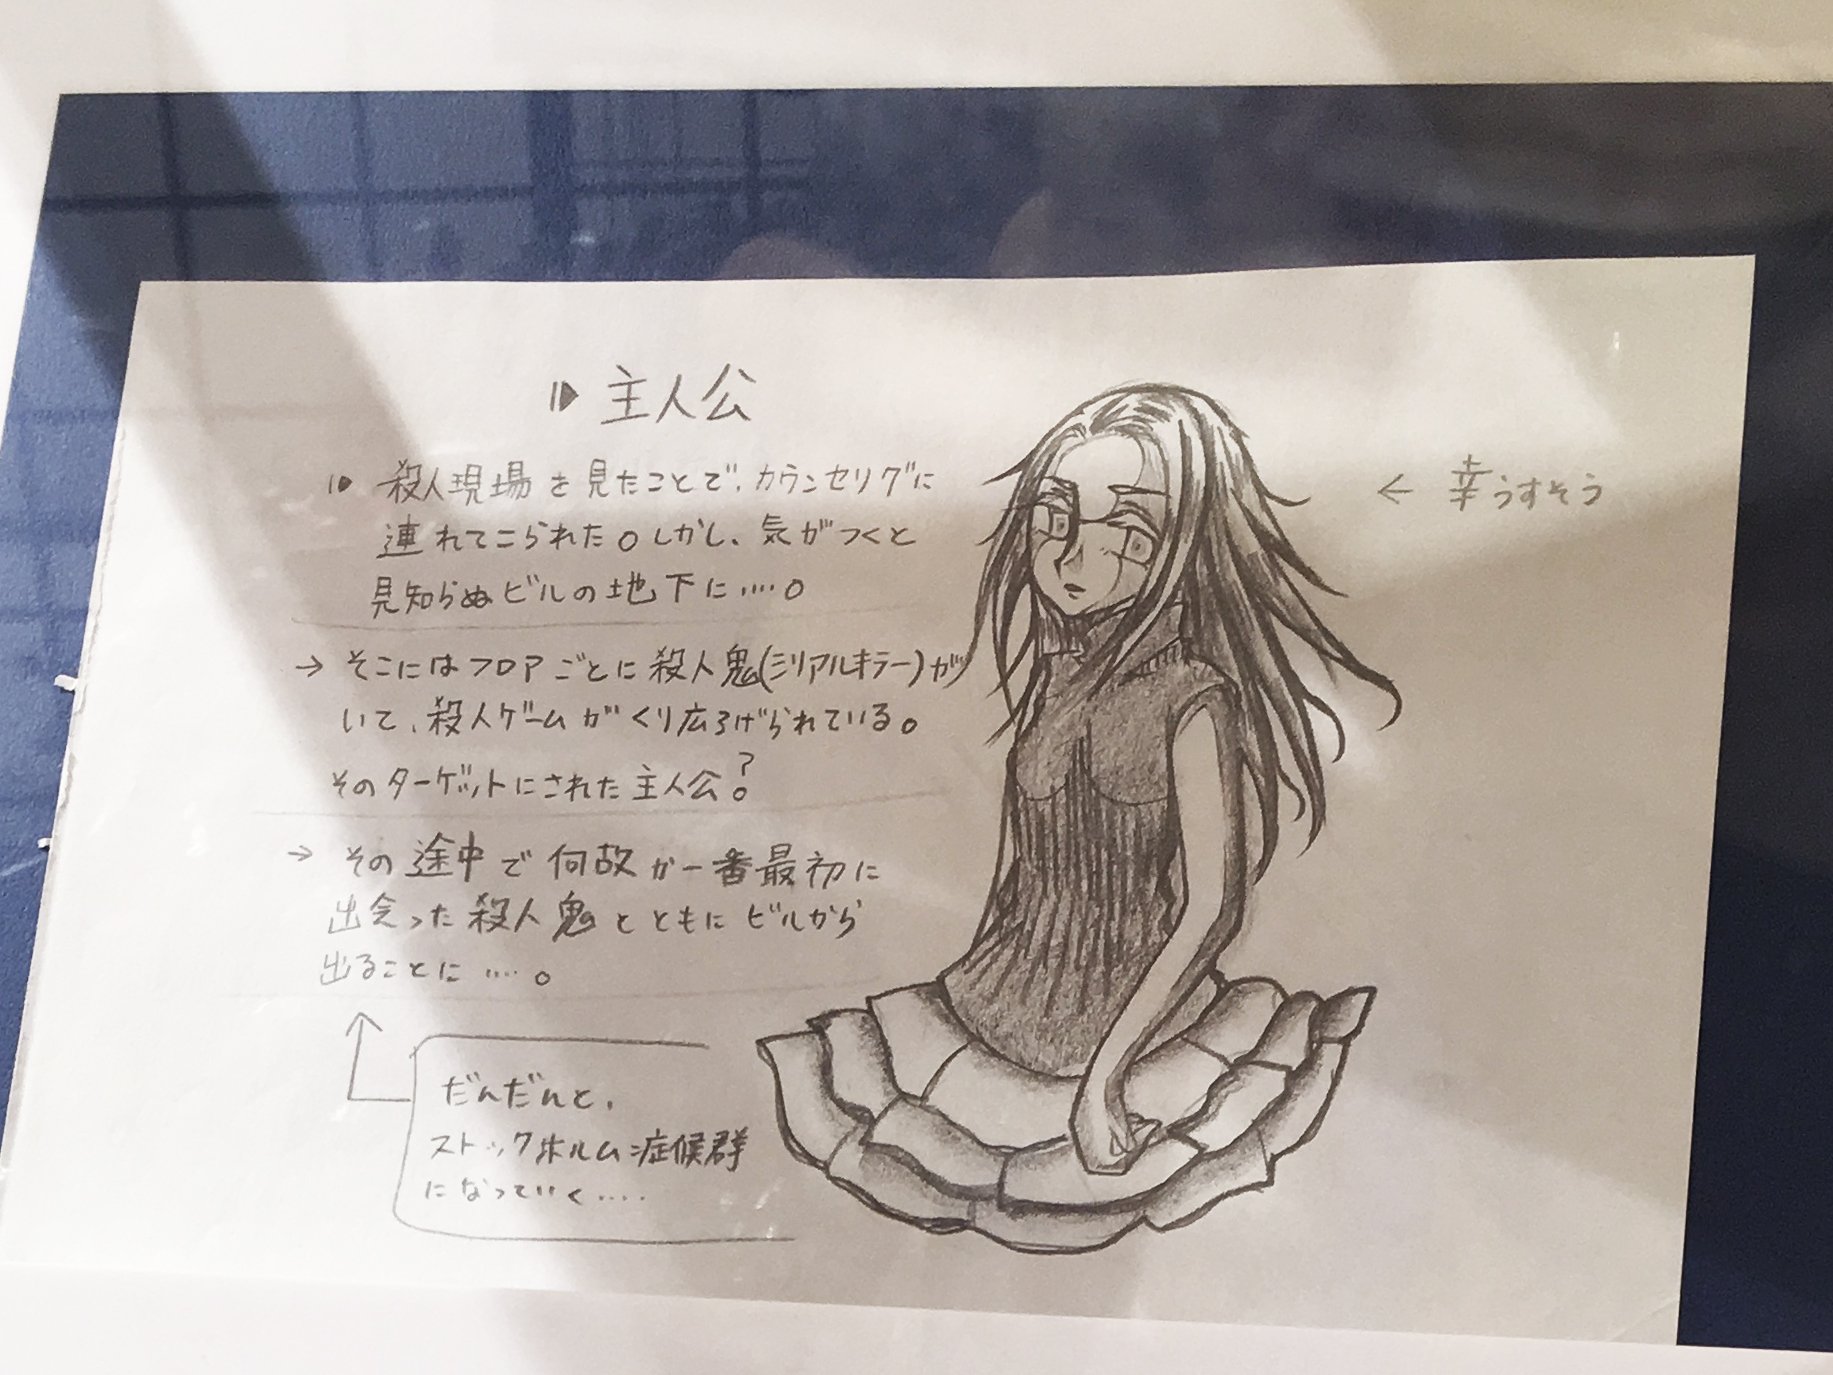 主人公
殺人現場を見たことで、カウンセリグに
連れてこられた。しかし、気がつくと
見知らぬビルの地下に....。
→ そこにはフロアごとに殺人鬼(ミリアルキラー)が
いて、殺人ゲームがくり広げられている。
そのターゲットにされた主人公?。
→ その途中で何故か一番最初に
出会った殺人鬼とともにビルから
出ることに....。
だんだんと、
ストックホルム症候群
になっていく....
← 幸うすそう